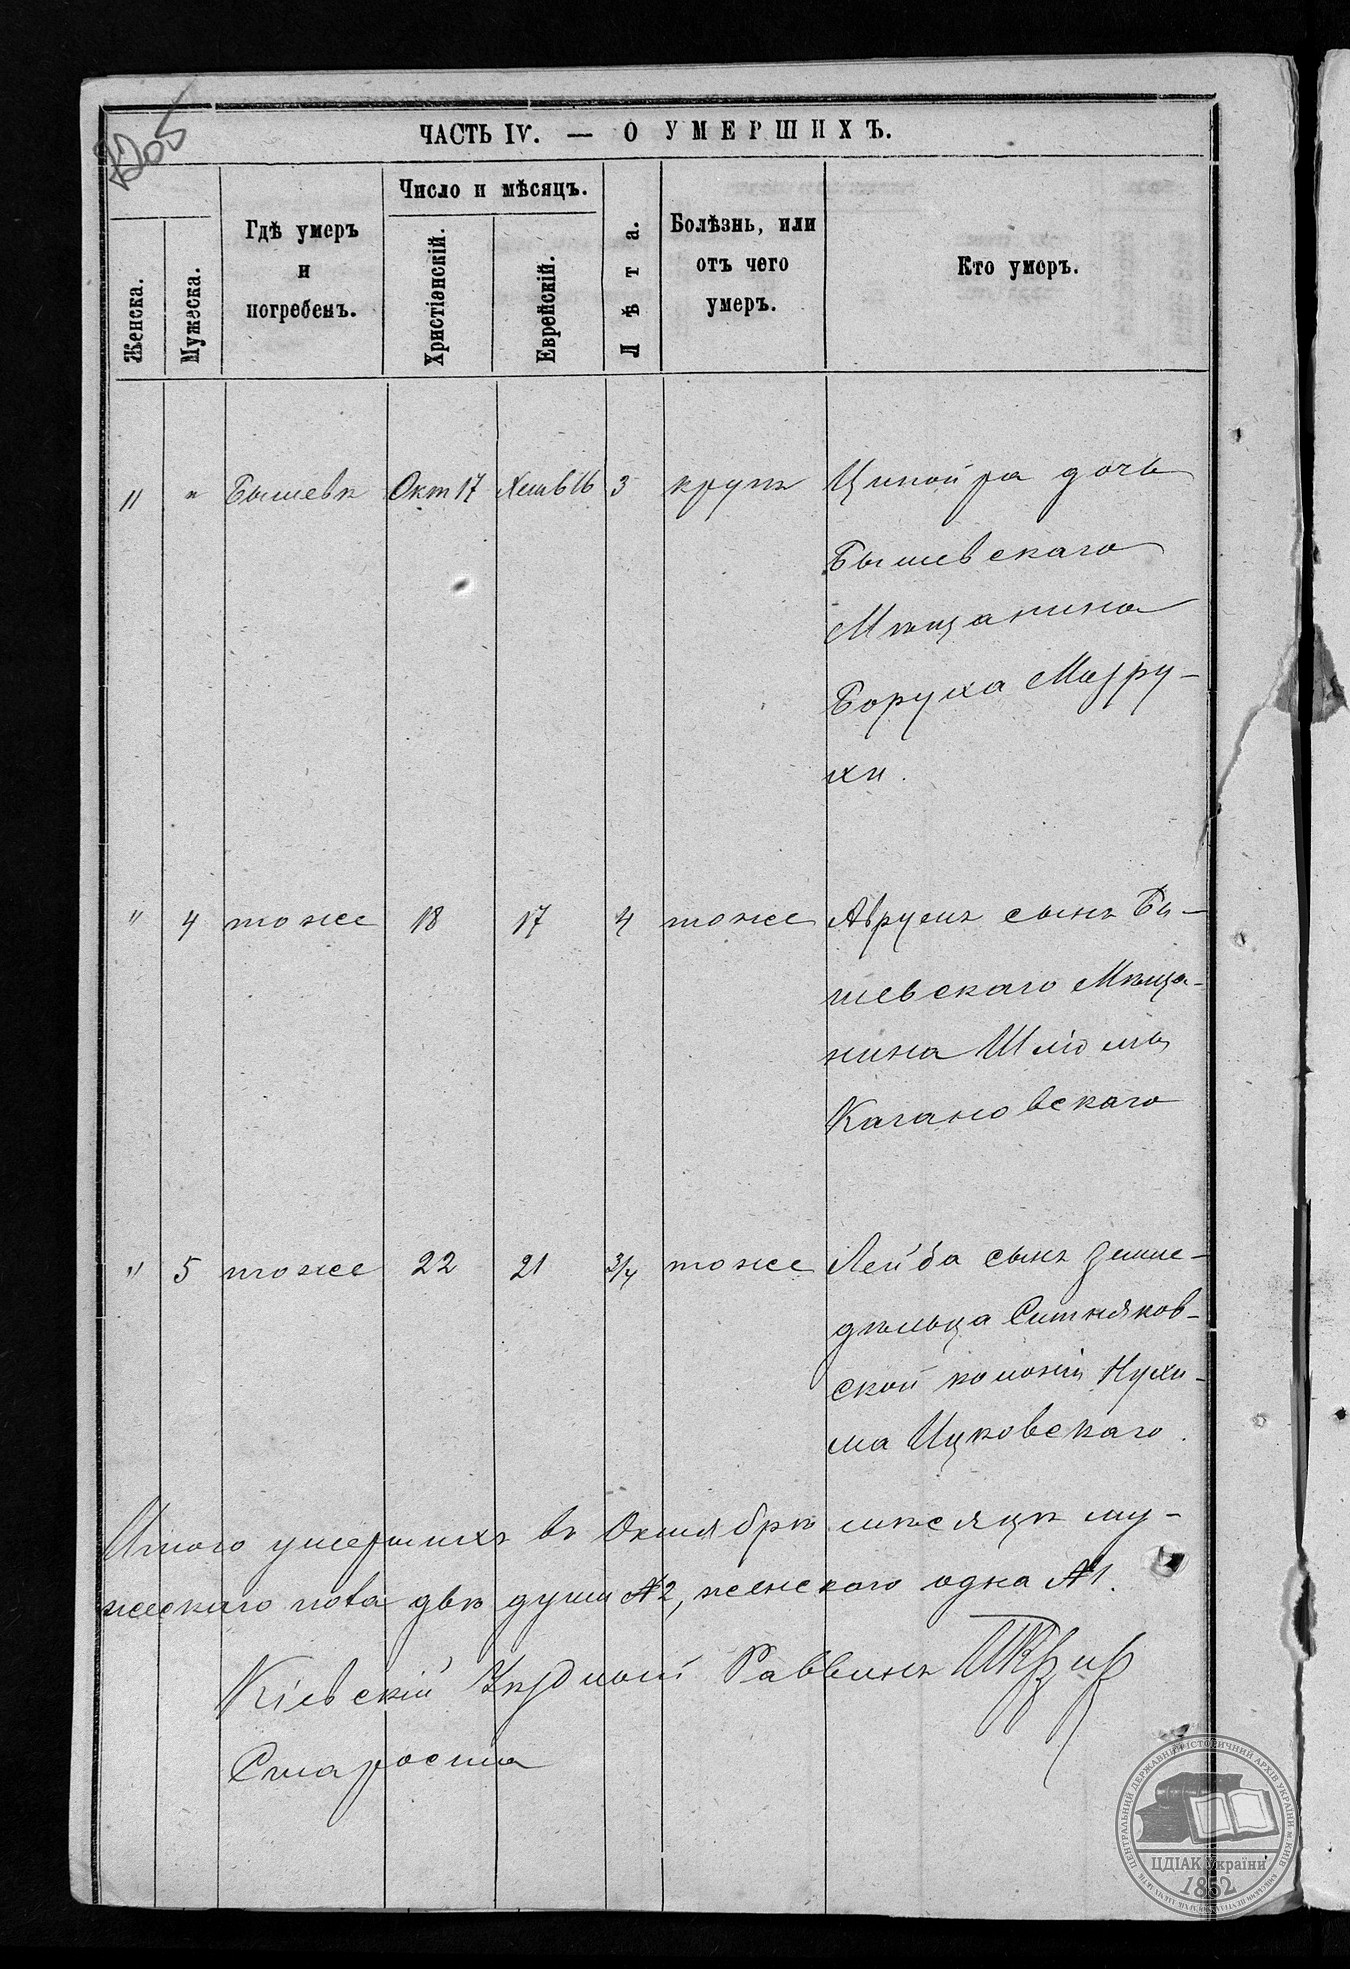 205
ЧАСТЬ IV. — О УМЕРШИХЪ.
Женска.
Мужеска.
Гдѣ умеръ
и
погребенъ.
Число и мѣсяцъ.
Христіанскій.
Еврейскій.
Лѣта.
Болѣзнь, или
отъ чего
умеръ.
Кто умеръ.
11 " Бышевѣ Окт 17 Хешв 16 3 крупъ Ципойра дочь
Бышевскаго
Мѣщанина
Боруха Мазру-
хи.
" 4 тоже 18 17 4 тоже Аврумъ сынъ Бы-
шевскаго Мѣща-
нина Шліомы
Кагановскаго
" 5 тоже 22 21 3/4 тоже Лейба сынъ земле-
дѣльца Ситняков-
ской колоніи Нухи-
ма Ицковскаго.
Итого умершихъ въ Октябрѣ мѣсяцѣ му-
жескаго пола двѣ души №2, женскаго одна №1.
Кіевскій Уѣздный Раввинъ
Староста
ЦЕНТРАЛЬНИЙ ДЕРЖАВНИЙ ІСТОРИЧНИЙ АРХІВ УКРАЇНИ м. КИЇВ
ЦДІАК України
1852